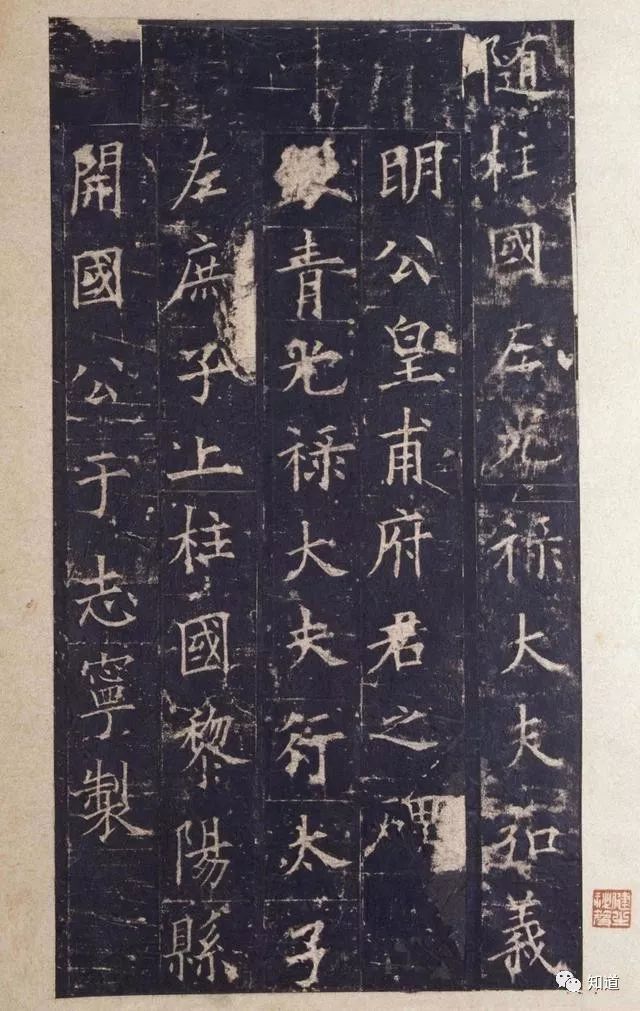 随柱國左光禄大夫弘義
明公皇甫府君之碑
青光禄大夫行太子
左庶子上柱國黎陽縣
開國公于志寧製
知道